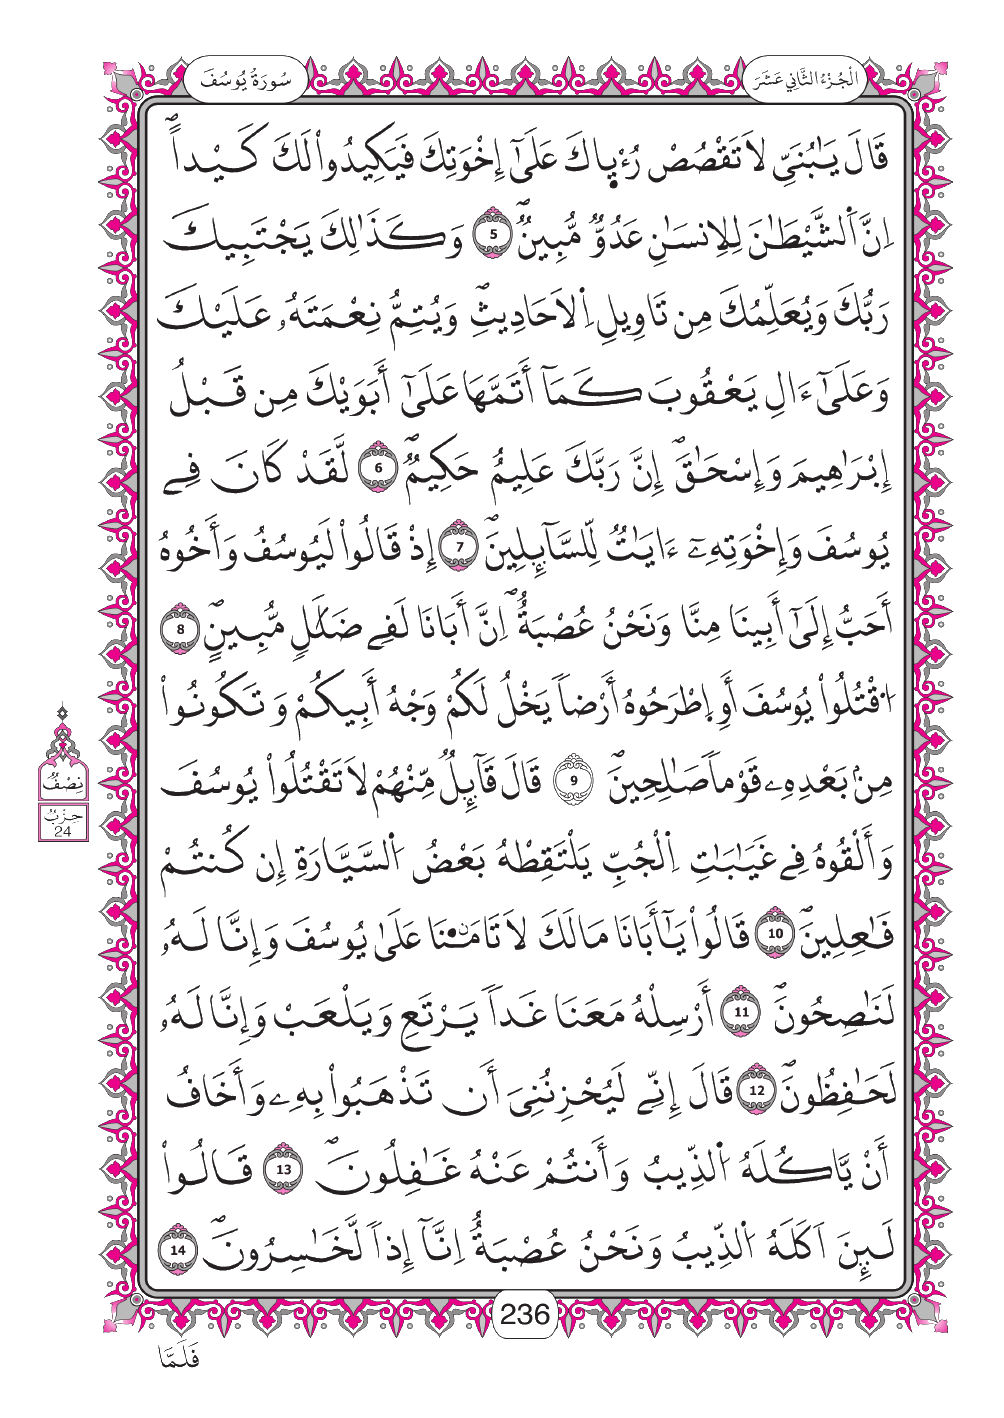 سُورَةُ يُوسُفَ
الْجُزْءُ الثَّانِي عَشَرَ
قَالَ يَٰبُنَيِّ لَا تَقْصُصْ رُءْيٜاكَ عَلَىٰٓ إِخْوَتِكَ فَيَكِيدُواْ لَكَ كَيْداًۖ
اِنَّ اَ۬لشَّيْطَٰنَ لِلِانسَٰنِ عَدُوّٞ مُّبِينٞۖ 5 وَكَذَٰلِكَ يَجْتَبِيكَ
رَبُّكَ وَيُعَلِّمُكَ مِن تَاوِيلِ اِ۬لَاحَادِيثِۖ وَيُتِمُّ نِعْمَتَهُۥ عَلَيْكَ
وَعَلَىٰٓ ءَالِ يَعْقُوبَ كَمَآ أَتَمَّهَا عَلَىٰٓ أَبَوَيْكَ مِن قَبْلُ
إِبْرَٰهِيمَ وَإِسْحَٰقَۖ إِنَّ رَبَّكَ عَلِيمٌ حَكِيمٞۖ 6 لَّقَدْ كَانَ فِے
يُوسُفَ وَإِخْوَتِهِۦٓ ءَايَٰتٞ لِّلسَّآئِلِينَۖ 7 إِذْ قَالُواْ لَيُوسُفُ وَأَخُوهُ
أَحَبُّ إِلَىٰٓ أَبِينَا مِنَّا وَنَحْنُ عُصْبَةٌۖ اِنَّ أَبَانَا لَفِے ضَلَٰلٖ مُّبِينٍۖ 8
اِ۟قْتُلُواْ يُوسُفَ أَوِ اِ۪طْرَحُوهُ أَرْضاٗ يَخْلُ لَكُمْ وَجْهُ أَبِيكُمْ وَتَكُونُواْ
مِنۢ بَعْدِهِۦ قَوْماٗ صَٰلِحِينَۖ 9 قَالَ قَآئِلٞ مِّنْهُمْ لَا تَقْتُلُواْ يُوسُفَ
وَأَلْقُوهُ فِے غَيَٰبَٰتِ اِ۬لْجُبِّ يَلْتَقِطْهُ بَعْضُ اُ۬لسَّيَّارَةِ إِن كُنتُمْ
فَٰعِلِينَۖ 10 قَالُواْ يَٰٓأَبَانَا مَالَكَ لَا تَامَ۬نَّا عَلَىٰ يُوسُفَ وَإِنَّا لَهُۥ
لَنَٰصِحُونَۖ 11 أَرْسِلْهُ مَعَنَا غَداٗ يَرْتَعِ وَيَلْعَبْ وَإِنَّا لَهُۥ
لَحَٰفِظُونَۖ 12 قَالَ إِنِّے لَيُحْزِنُنِيَ أَن تَذْهَبُواْ بِهِۦ وَأَخَافُ
أَنْ يَّاكُلَهُ اُ۬لذِّيبُ وَأَنتُمْ عَنْهُ غَٰفِلُونَۖ 13 قَالُواْ
لَئِنَ اَكَلَهُ اُ۬لذِّيبُ وَنَحْنُ عُصْبَةٌ اِنَّآ إِذاٗ لَّخَٰسِرُونَۖ 14
نِصْفُ
حِزْبُ
24
236
فَلَمَّا